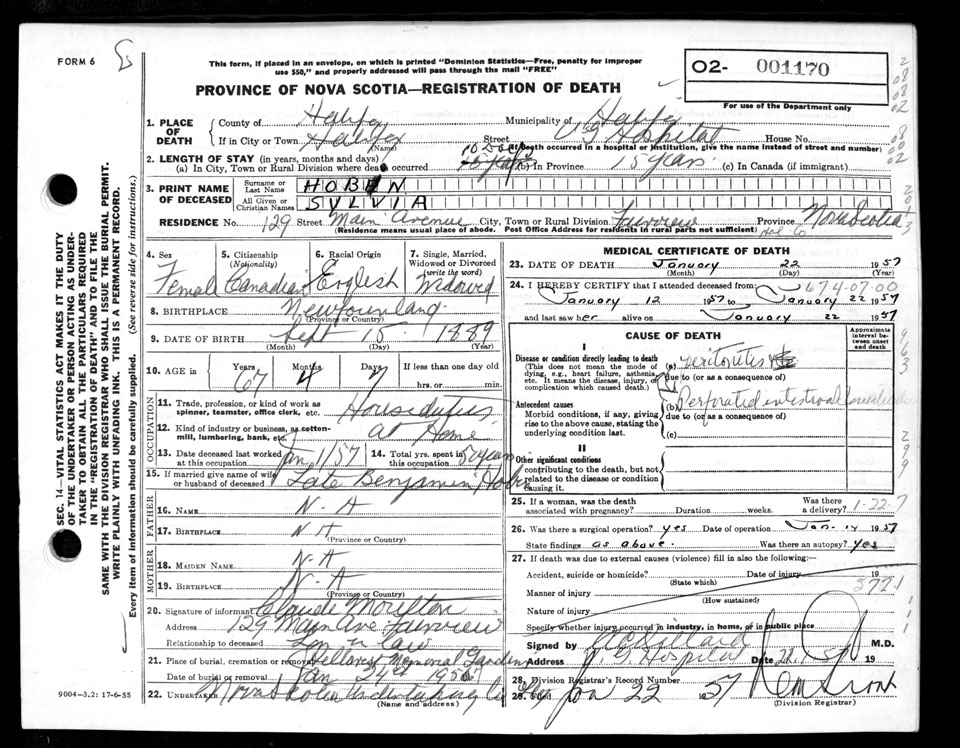 FORM 6
This form, if placed in an envelope, on which is printed "Dominion Statistics—Free, penalty for improper
use $50," and properly addressed will pass through the mail "FREE"
02- 001170
For use of the Department only
PROVINCE OF NOVA SCOTIA—REGISTRATION OF DEATH
1. PLACE OF DEATH
County of Halifax Municipality of Halifax
If in City or Town Halifax Street V G Hospital House No.
(Name) (If death occurred in a hospital or institution, give the name instead of street and number)
2. LENGTH OF STAY (in years, months and days)
(a) In City, Town or Rural Division where death occurred 10 Days (b) In Province 15 years (c) In Canada (if immigrant)
3. PRINT NAME OF DECEASED
Surname or Last Name HOBEN
All Given or Christian Names SYLVIA
RESIDENCE No. 129 Street Main Avenue City, Town or Rural Division Fairview Province Nova Scotia
(Residence means usual place of abode. Post Office Address for residents in rural parts not sufficient) Hal Co
4. Sex
Female
5. Citizenship (Nationality)
Canadian
6. Racial Origin
English
7. Single, Married, Widowed or Divorced (write the word)
Widowed
8. BIRTHPLACE Newfoundland
(Province or Country)
9. DATE OF BIRTH Sept 15 1889
(Month) (Day) (Year)
10. AGE in Years 67 Months 4 Days 7 If less than one day old
hrs. or min.
OCCUPATION
11. Trade, profession, or kind of work as spinner, teamster, office clerk, etc. House duties
12. Kind of industry or business, as cotton-mill, lumbering, bank, etc. At Home
13. Date deceased last worked at this occupation Jan 1/57
14. Total yrs. spent in this occupation 50 years
15. If married give name of wife or husband of deceased Late Benjamin Hoben
FATHER
16. NAME N-A
17. BIRTHPLACE N A
(Province or Country)
MOTHER
18. MAIDEN NAME N-A
19. BIRTHPLACE N-A
(Province or Country)
20. Signature of informant Claude Moulton
Address 129 Main Ave Fairview
Relationship to deceased Son in law
21. Place of burial, cremation or removal Memorial Gardens
Date of burial or removal Jan 24th 195
22. UNDERTAKER Nova Scotia Undertaking Co
(Name and address)
MEDICAL CERTIFICATE OF DEATH
23. DATE OF DEATH January 22 1957
(Month) (Day) (Year)
674-07-00
24. I HEREBY CERTIFY that I attended deceased from:
January 12 1957 to January 22 1957
and last saw her alive on January 22 1957
CAUSE OF DEATH
Approximate interval between onset and death
I
Disease or condition directly leading to death
(This does not mean the mode of dying, e.g., heart failure, asthenia, etc. It means the disease, injury, or complication which caused death.)
(a) Peritonitis
due to (or as a consequence of)
Antecedent causes
Morbid conditions, if any, giving rise to the above cause, stating the underlying condition last.
(b) Perforated intestinal
due to (or as a consequence of)
(c)
II
Other significant conditions
contributing to the death, but not related to the disease or condition causing it
25. If a woman, was the death associated with pregnancy? Duration weeks. Was there a delivery? 1-22-7
26. Was there a surgical operation? yes Date of operation Jan. 14 1957
State findings as above. Was there an autopsy? Yes
27. If death was due to external causes (violence) fill in also the following:
Accident, suicide or homicide? Date of injury 19
(State which)
5721
Manner of injury
(How sustained)
Nature of injury
Specify whether injury occurred in industry, in home, or in public place
Signed by M.D.
Address V. G. Hospital Date 19
28. Division Registrar's Record Number
29. Filed Jan 22 1957
(Division Registrar)
SEC. 14—VITAL STATISTICS ACT MAKES IT THE DUTY
OF THE UNDERTAKER OR PERSON ACTING AS UNDER-
TAKER TO OBTAIN ALL THE PARTICULARS REQUIRED
IN THE "REGISTRATION OF DEATH" AND TO FILE THE
SAME WITH THE DIVISION REGISTRAR WHO SHALL ISSUE THE BURIAL PERMIT.
WRITE PLAINLY WITH UNFADING INK. THIS IS A PERMANENT RECORD.
Every item of information should be carefully supplied. (See reverse side for instructions.)
9004-3.2: 17-6-55